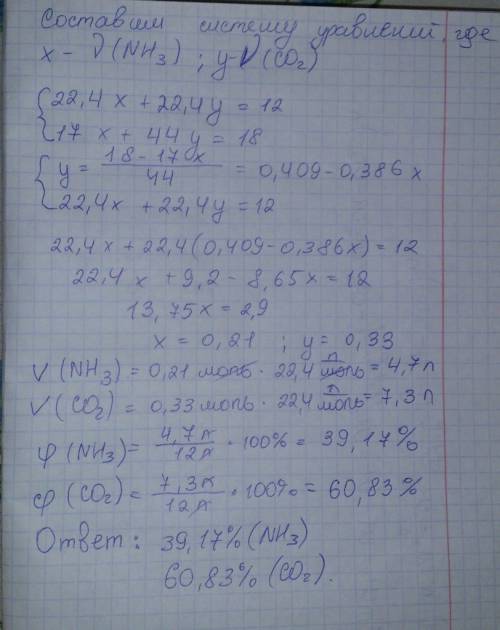 Составим систему уравнений, где
x - ν(NH₃) ; y - ν(CO₂)
{22,4x + 22,4y = 12
17x + 44y = 18
{y = (18-17x)/44 = 0,409-0,386x
22,4x + 22,4y = 12
22,4x + 22,4(0,409-0,386x) = 12
22,4x + 9,2 - 8,65x = 12
13,75x = 2,9
x = 0,21 ; y = 0,33
V(NH₃) = 0,21 моль · 22,4 л/моль = 4,7 л
V(CO₂) = 0,33 моль · 22,4 л/моль = 7,3 л
φ(NH₃) = 4,7л/12л · 100% = 39,17%
φ(CO₂) = 7,3л/12л · 100% = 60,83%
Ответ: 39,17% (NH₃)
60,83% (CO₂).